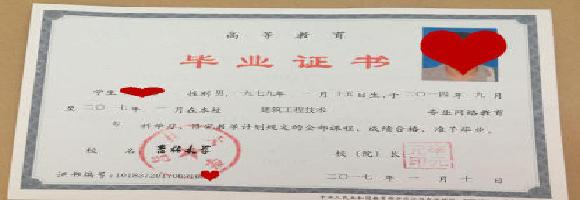 高等教育
毕业证书
学生 性别 男,一九七九年 一 月 十五日生,于二〇一四年 九月
至二〇一七年 一月在本校 建筑工程技术 专业网络教育
专 科学习,修完教学计划规定的全部课程,成绩合格,准予毕业。
校 名 吉林大学 校(院)长
证书编号:
二〇一七年 一 月 十 日